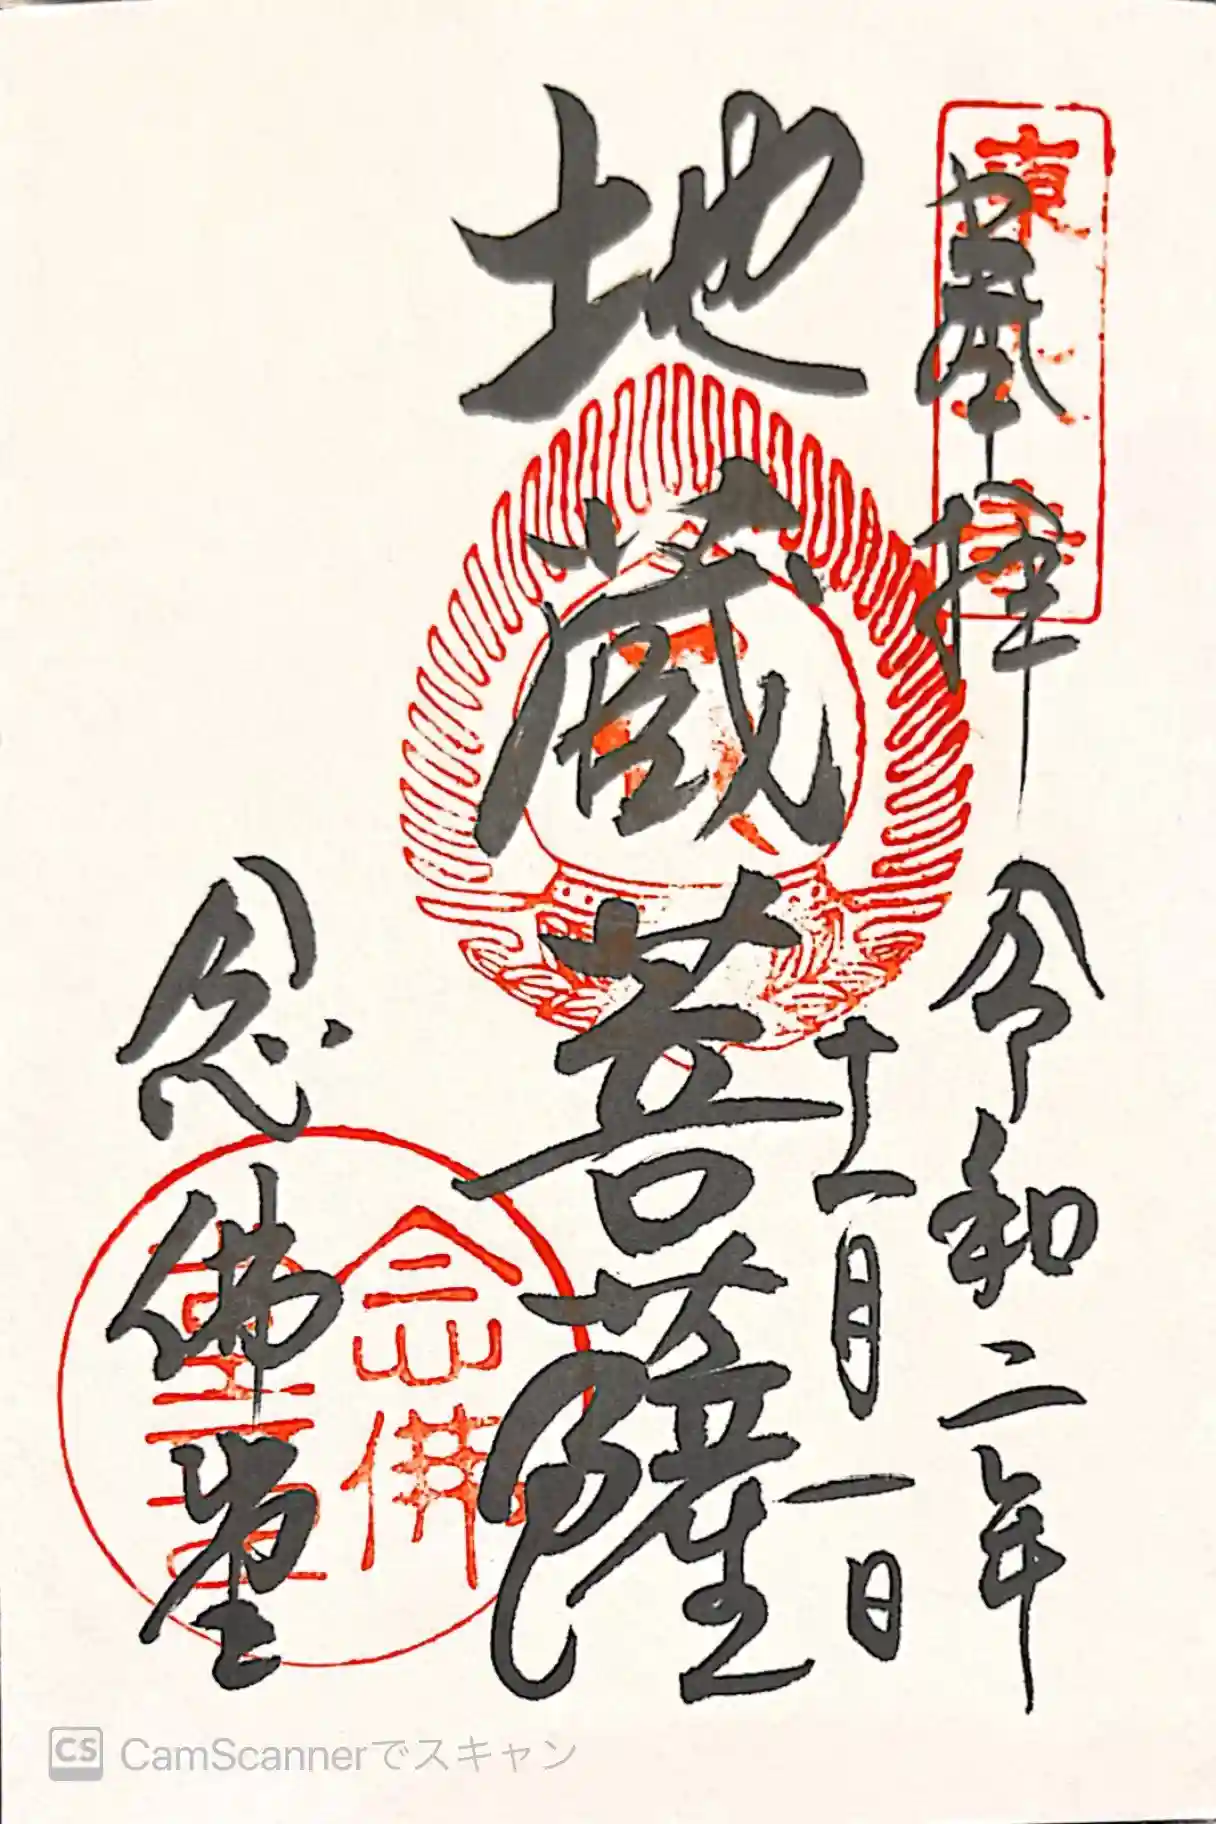 奉拝
令和二年
十一月一日
地蔵菩薩
念佛堂
念佛
堂
CamScannerでスキャン